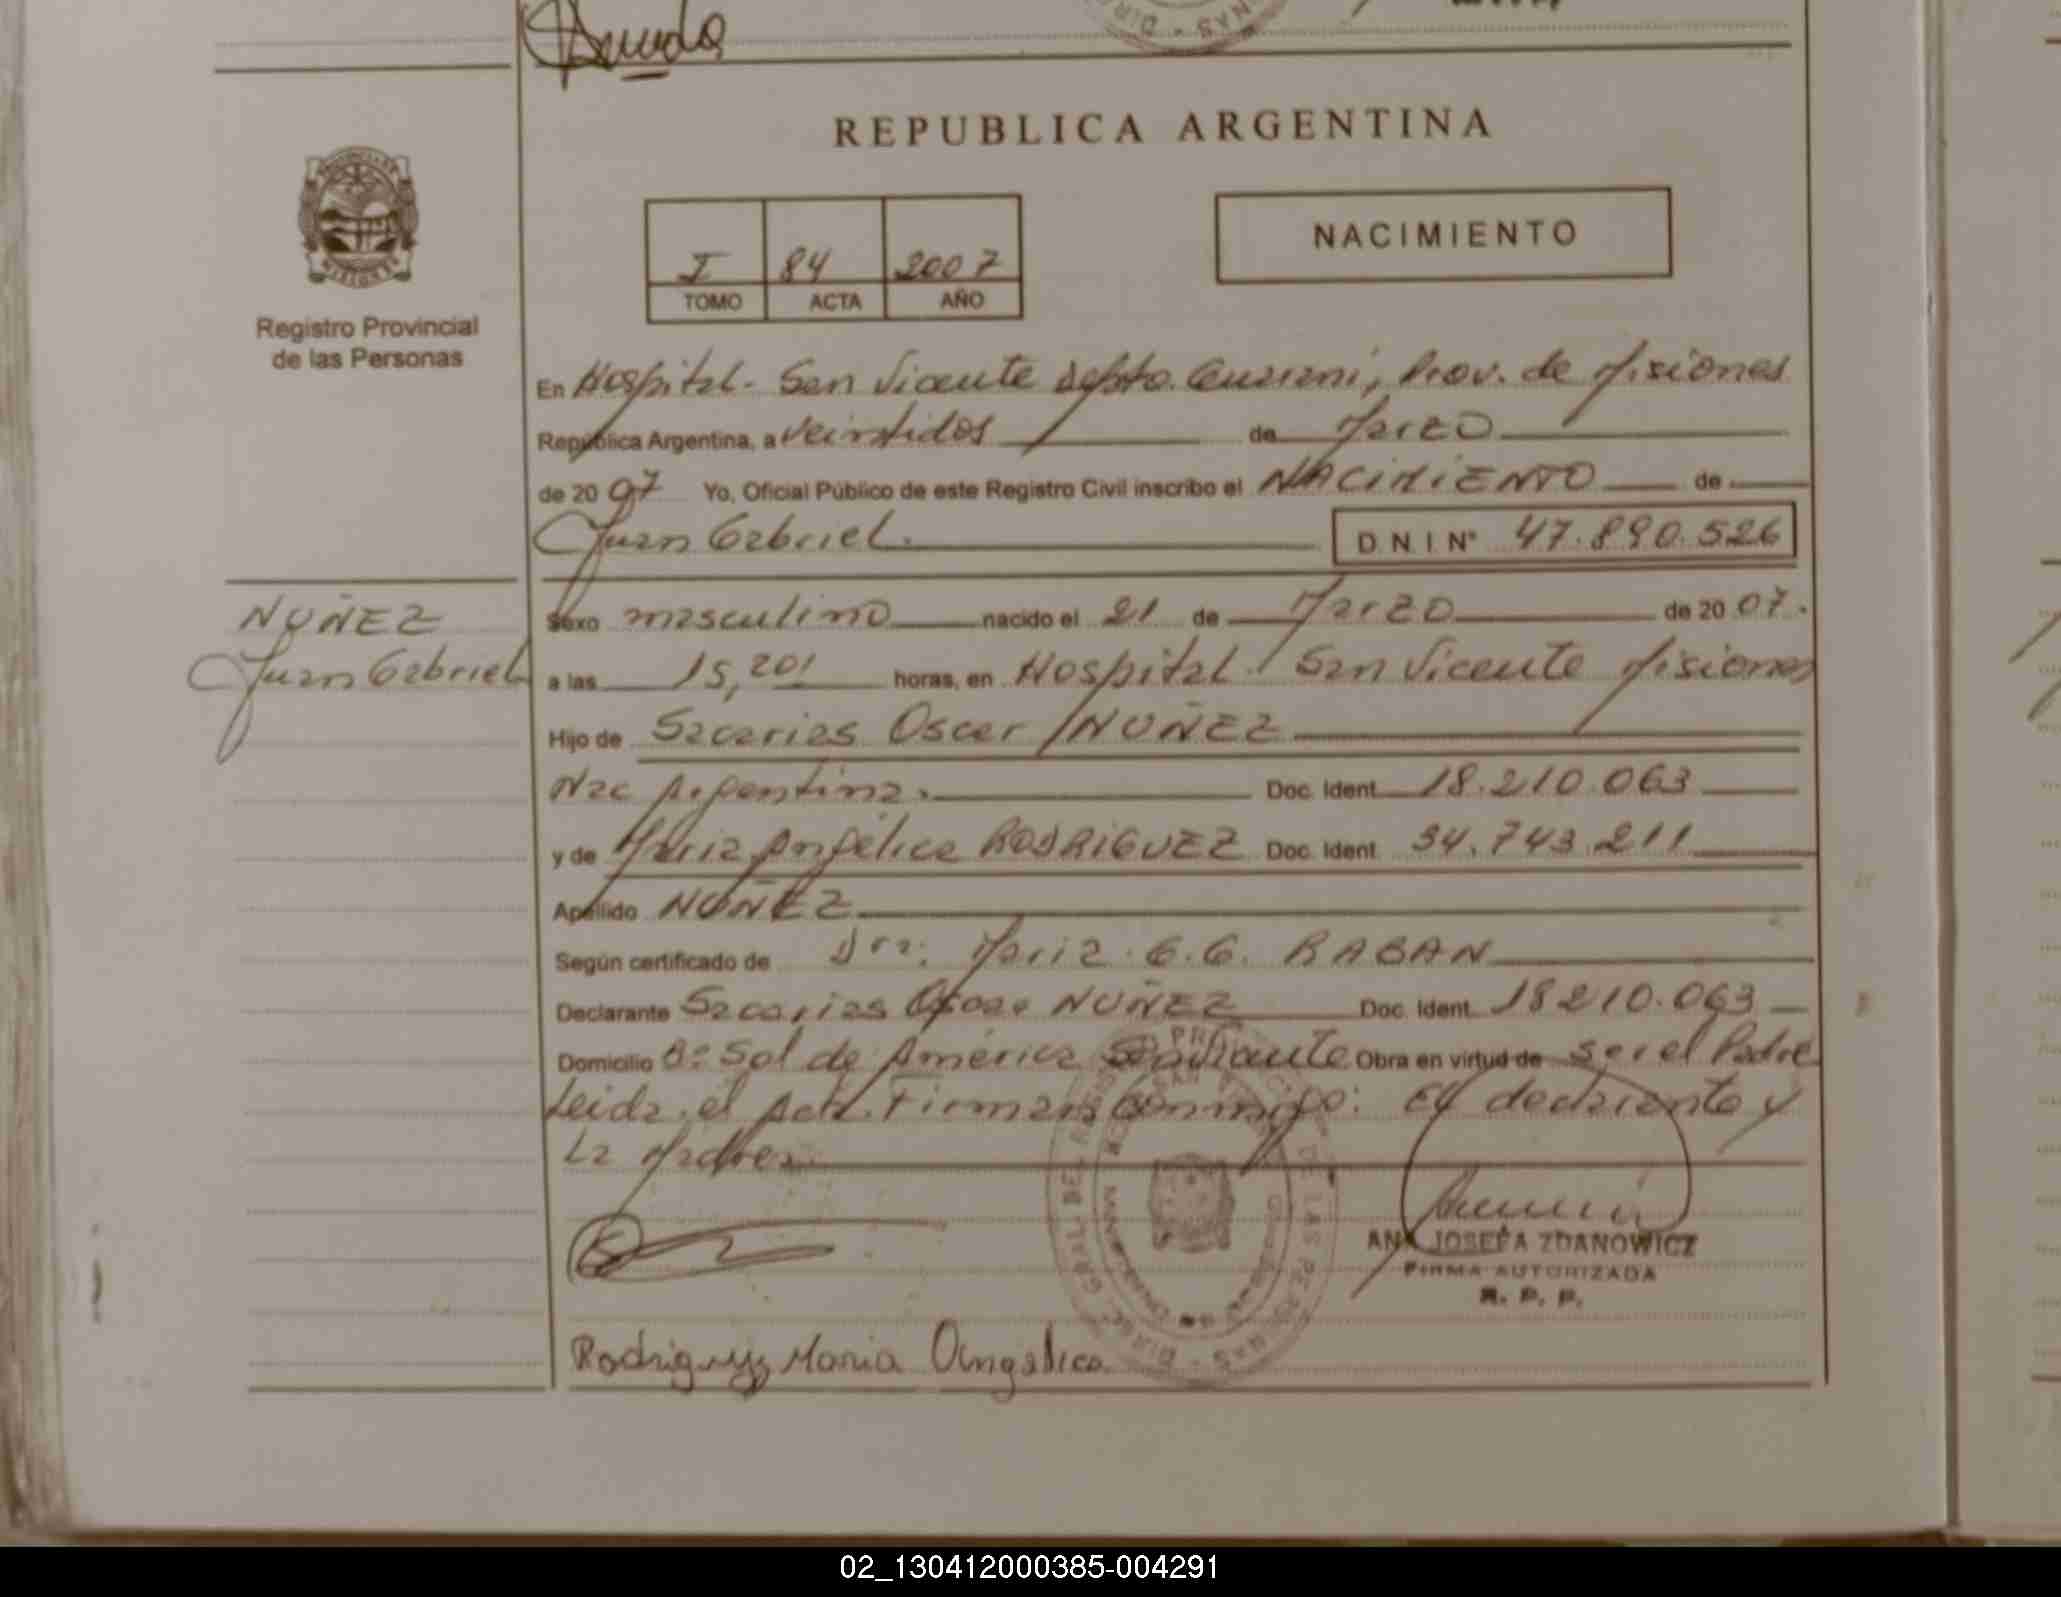 REPUBLICA ARGENTINA
I 84 2007
TOMO ACTA AÑO
NACIMIENTO
Registro Provincial
de las Personas
En Hospital. San Vicente depto. Guarani, Prov. de Misiones
República Argentina, a veintidos de Marzo
de 2007 Yo, Oficial Público de este Registro Civil inscribo el NACIMIENTO de
Juan Gabriel. D.N.I. N° 47.890.526
NUÑEZ
Juan Gabriel
Sexo masculino nacido el 21 de Marzo de 2007.
a las 15,20' horas, en Hospital. San Vicente Misiones
Hijo de Sacarias Oscar NUÑEZ
Nac Argentina. Doc. Ident. 18.210.063
y de Maria Angélica RODRIGUEZ Doc. Ident. 34.743.211
Apellido NUÑEZ
Según certificado de Dra: Maria G.G. RABAN
Declarante Sacarias Oscar NUÑEZ Doc. Ident. 18210.063
Domicilio B° Sol de América San Vicente Obra en virtud de ser el Padre
Leida el acta. Firman Conmigo: El declarante y
La Madre.
ANA JOSEFA ZDANOWICZ
FIRMA AUTORIZADA
R. P. P.
Rodriguez Maria Angelica.
02_130412000385-004291